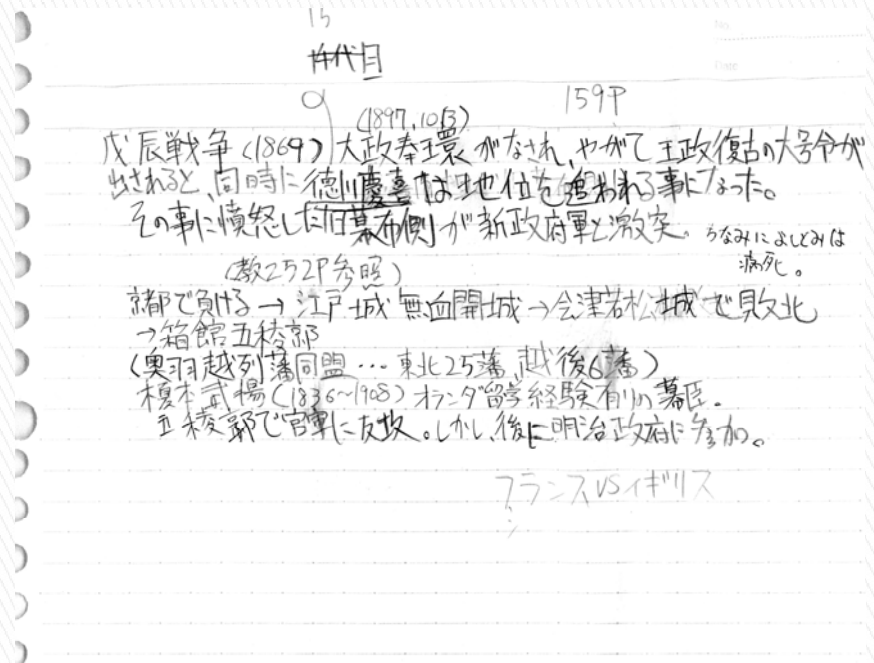 15
代目
159P
(1897.10.13)
戊辰戦争(1869) 大政奉環がなされ、やがて王政復古の大号令が
出されると、同時に徳川慶喜は地位を追われる事になった。
その事に憤怒した旧幕布側が新政府軍と激突。ちなみによしとみは
病死。
(教252P参照)
京都で負ける→江戸城無血開城→会津若松城で敗北
→箱館五稜郭
(奥羽越列藩同盟…東北25藩、越後6藩)
榎本武揚(1836~1908)オランダ留学経験有りの幕臣。
五稜郭で官軍に反攻。しかし、後に明治政府に参加。
フランスVSイギリス
No.
Date